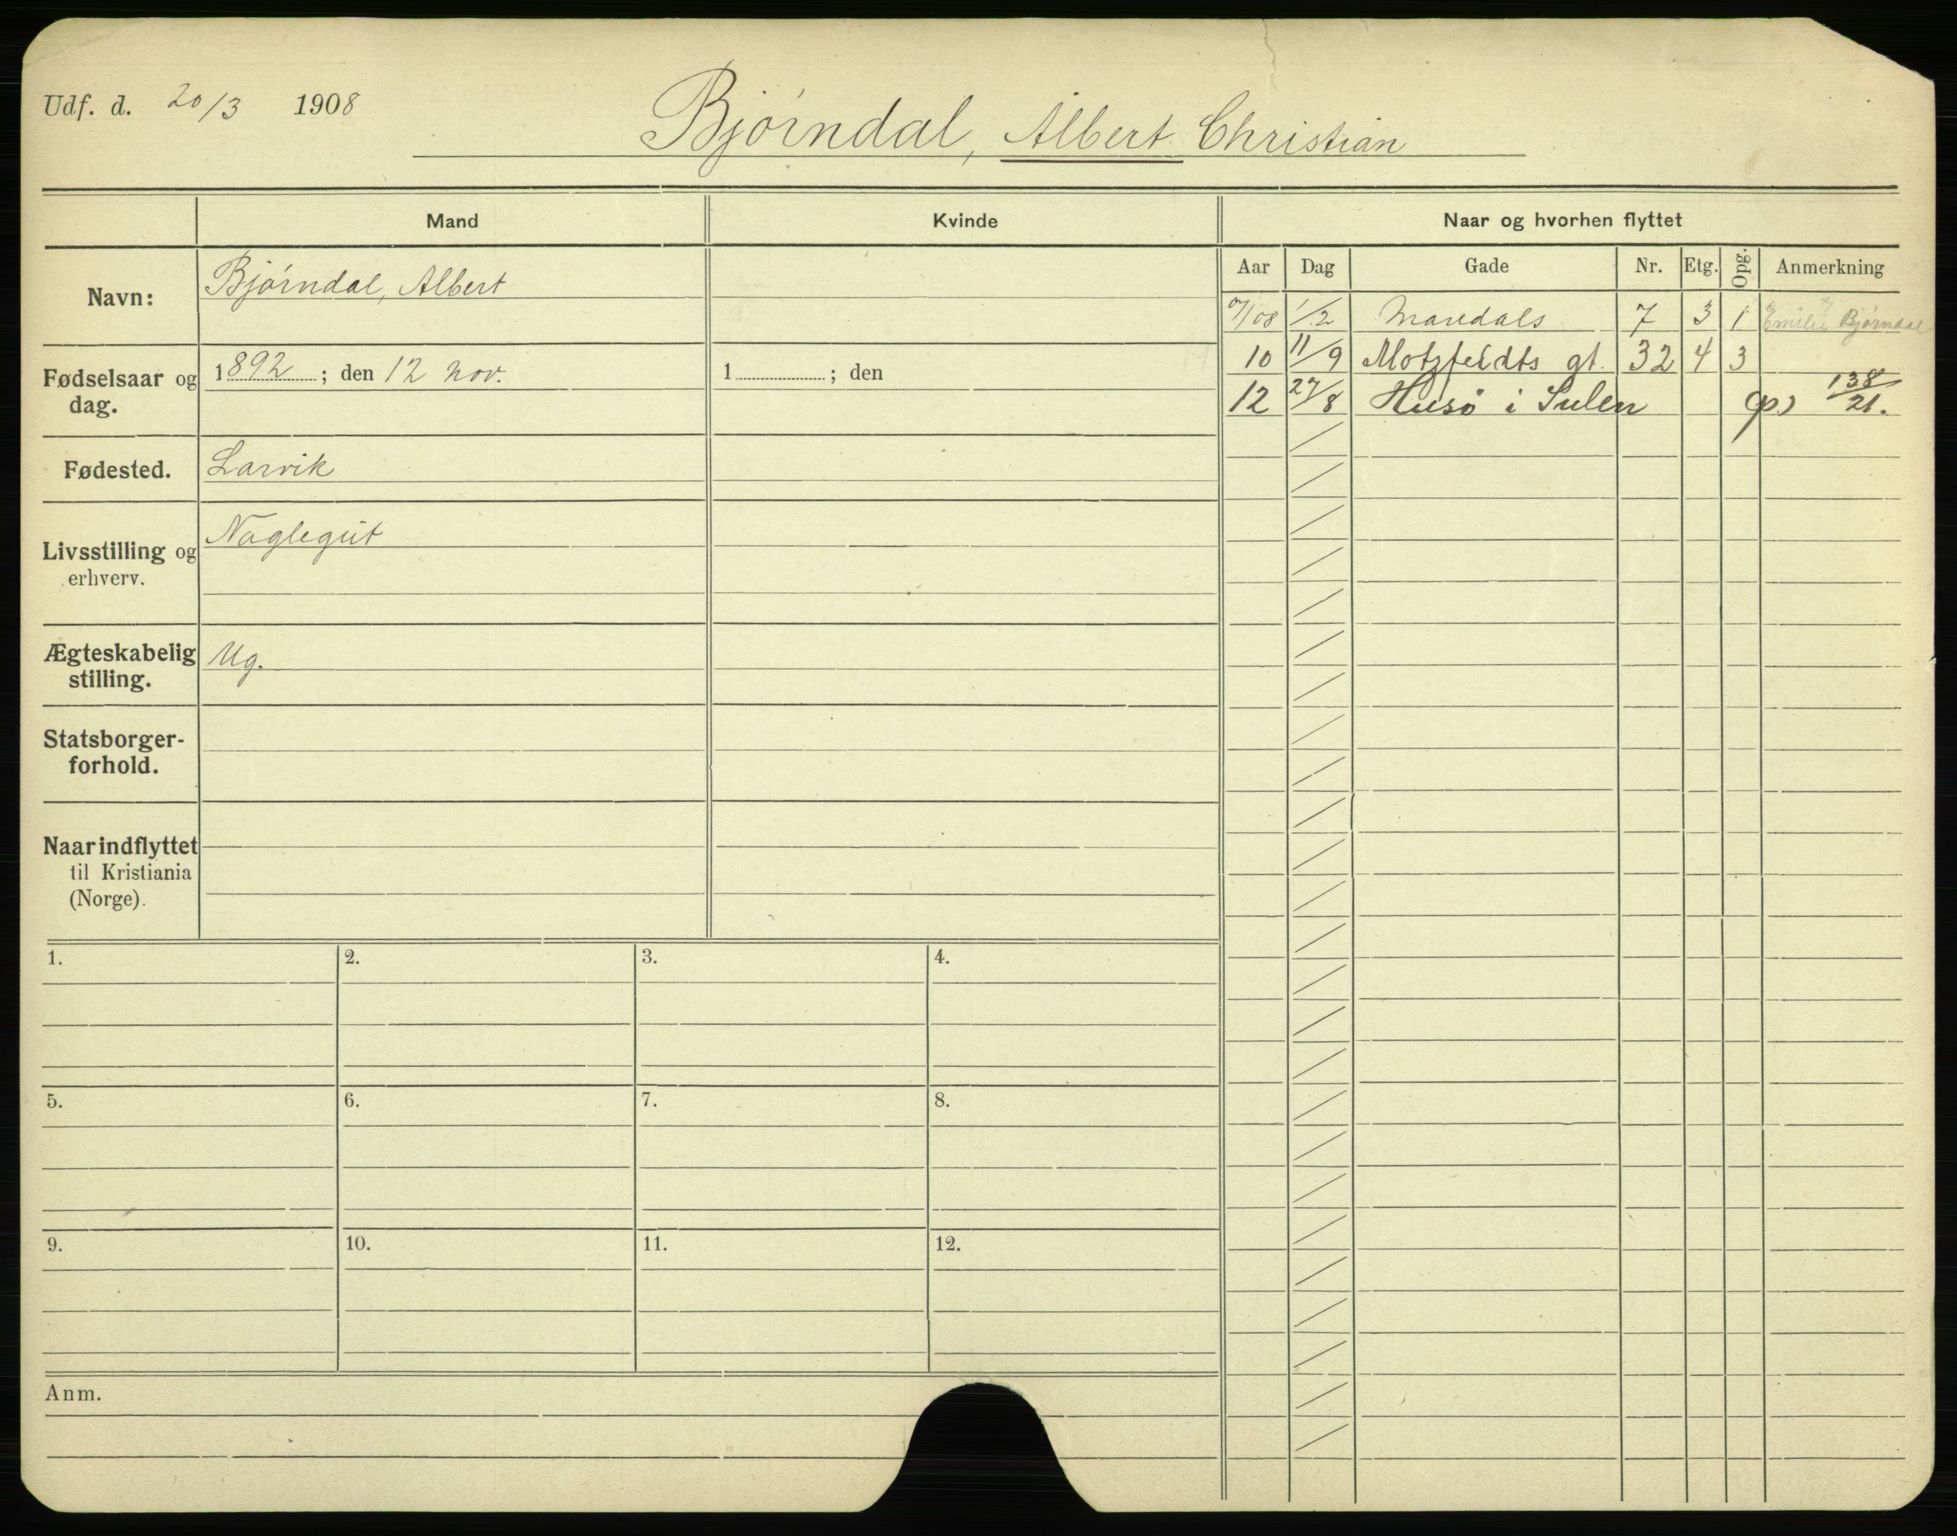 Udf. d. 20/3 1908
Bjørndal, Albert Christian
Mand Kvinde Naar og hvorhen flyttet
Aar Dag Gade Nr. Etg. Opg. Anmerkning
Navn: Bjørndal, Albert
07/08 1/2 Maridals 7 3 1 Emilie Bjørndal
10 11/9 Motzfeldts gt. 32 4 3
12 27/8 Husø i Sulen 138/21.
Fødselsaar og 1892; den 12 Nov. 1 ; den
dag.
Fødested. Larvik
Livsstilling og Naglegut
erhverv.
Ægteskabelig Ug.
stilling.
Statsborger-
forhold.
Naar indflyttet
til Kristiania
(Norge).
1. 2. 3. 4.
5. 6. 7. 8.
9. 10. 11. 12.
Anm.